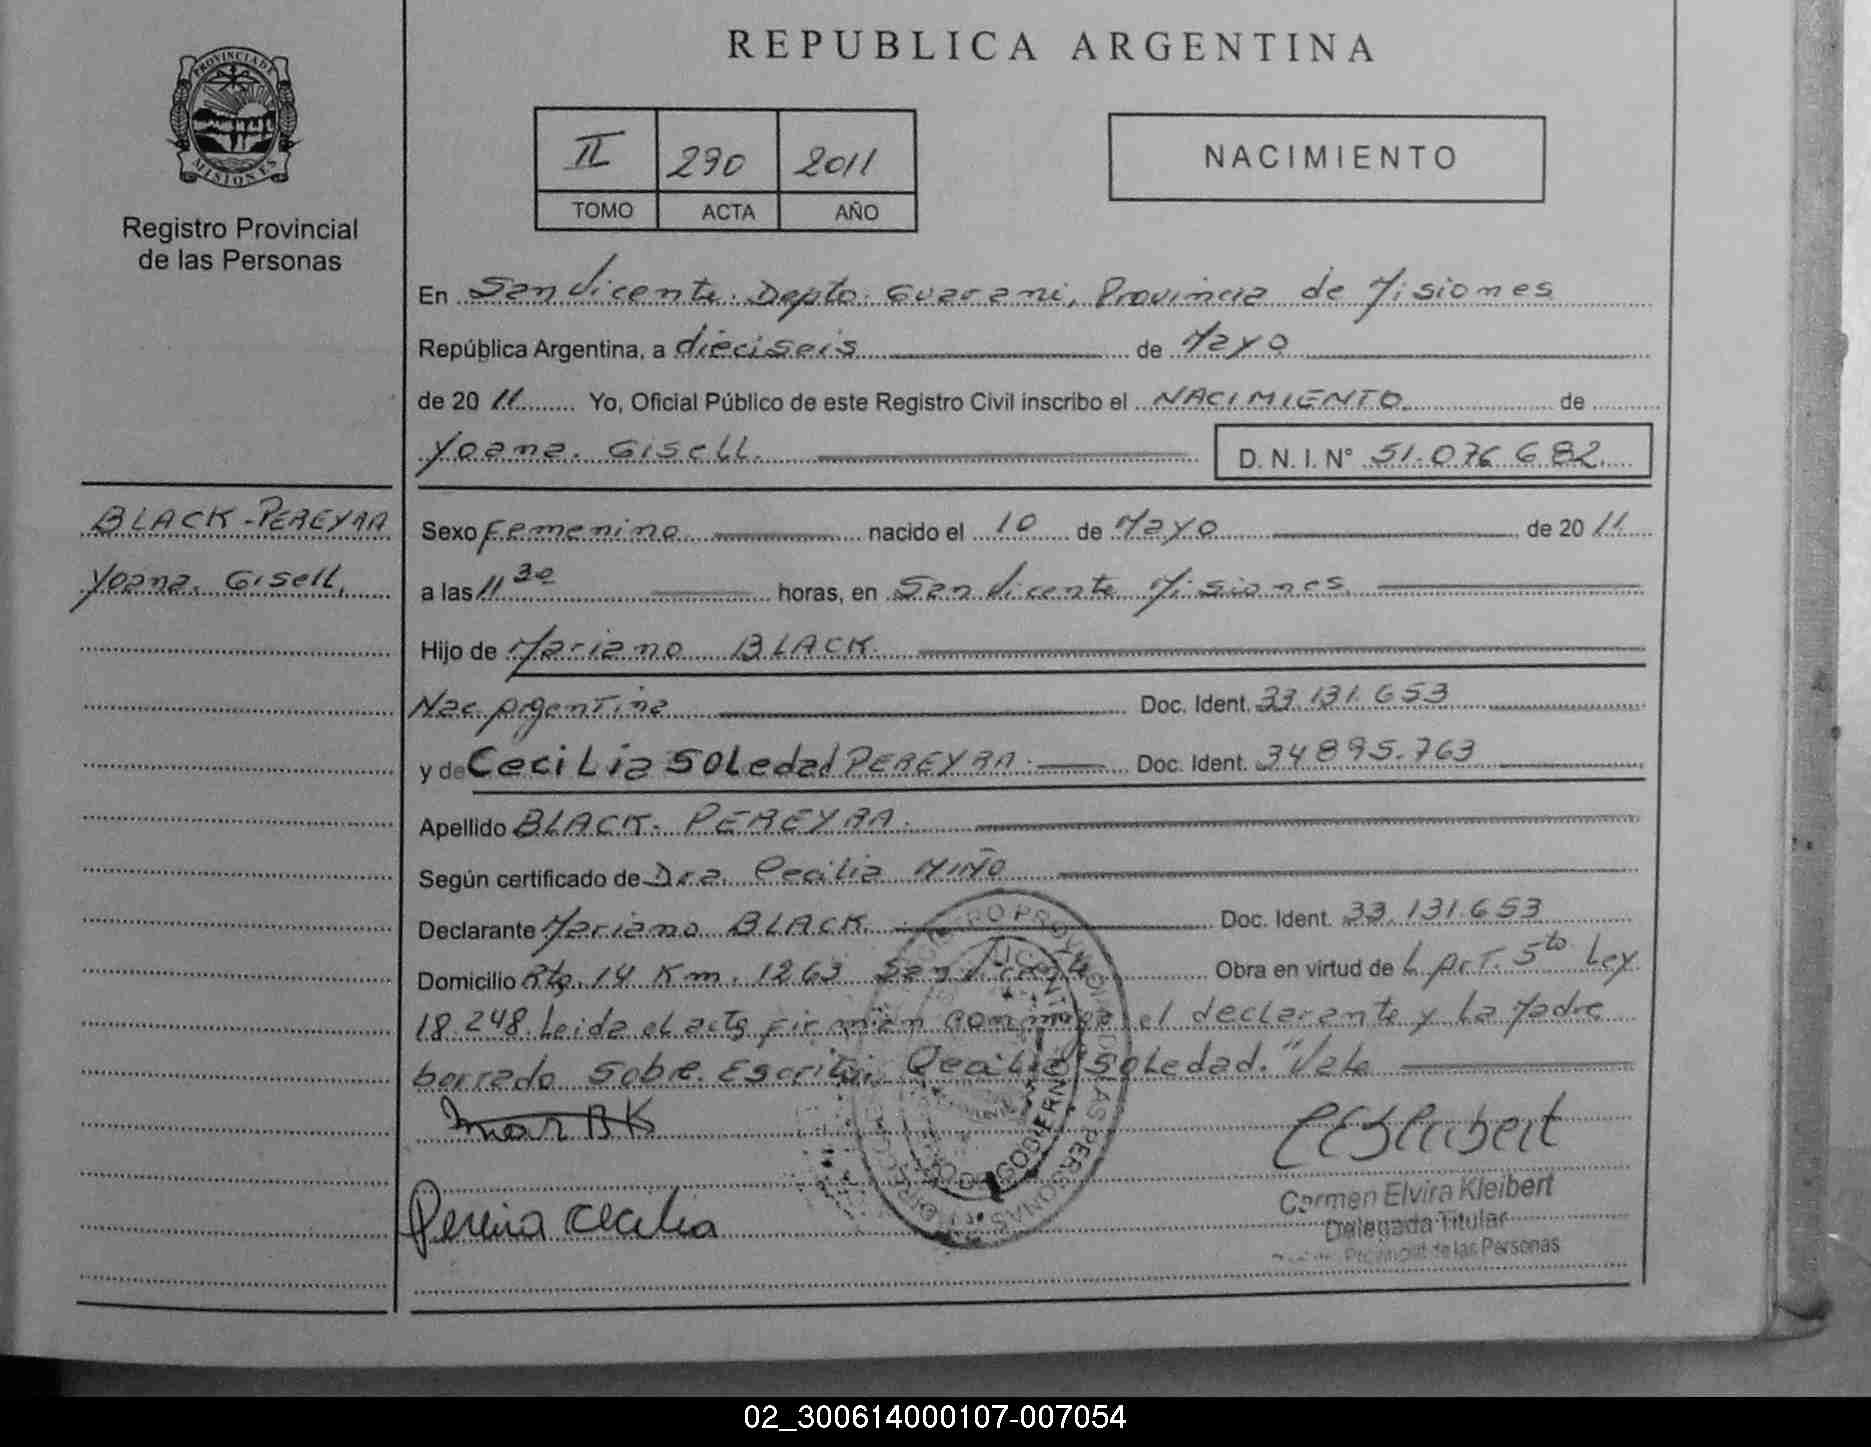 REPUBLICA ARGENTINA
PROVINCIA DE
MISIONES
Registro Provincial
de las Personas
II 290 2011
TOMO ACTA AÑO
NACIMIENTO
En San Vicente. Depto. Guarani, Provincia de Misiones
República Argentina, a dieciseis de Mayo
de 20 11 Yo, Oficial Público de este Registro Civil inscribo el NACIMIENTO de
Yoana. Gisell. D. N. I. N° 51.076.682.
BLACK-PEREYRA
Yoana. Gisell.
Sexo Femenino nacido el 10 de Mayo de 20 11
a las 11 30 horas, en San Vicente Misiones
Hijo de Mariano BLACK.
Nac. Argentina Doc. Ident. 33.131.653
y de Cecilia Soledad PEREYRA. Doc. Ident. 34895.763
Apellido BLACK- PEREYRA.
Según certificado de Dra. Cecilia MIÑO
Declarante Mariano BLACK. Doc. Ident. 33.131.653
Domicilio Rta. 14 Km. 1263 San Vicente Obra en virtud de L Art. 5to Ley
18.248. Leida el acta firman conmigo el declarante y La Madre
borrado sobre Escrito: Cecilia Soledad." Vale
Mar BK
Pereira Cecilia
CEKleibert
Carmen Elvira Kleibert
Delegada Titular
Provincial de las Personas
02_300614000107-007054